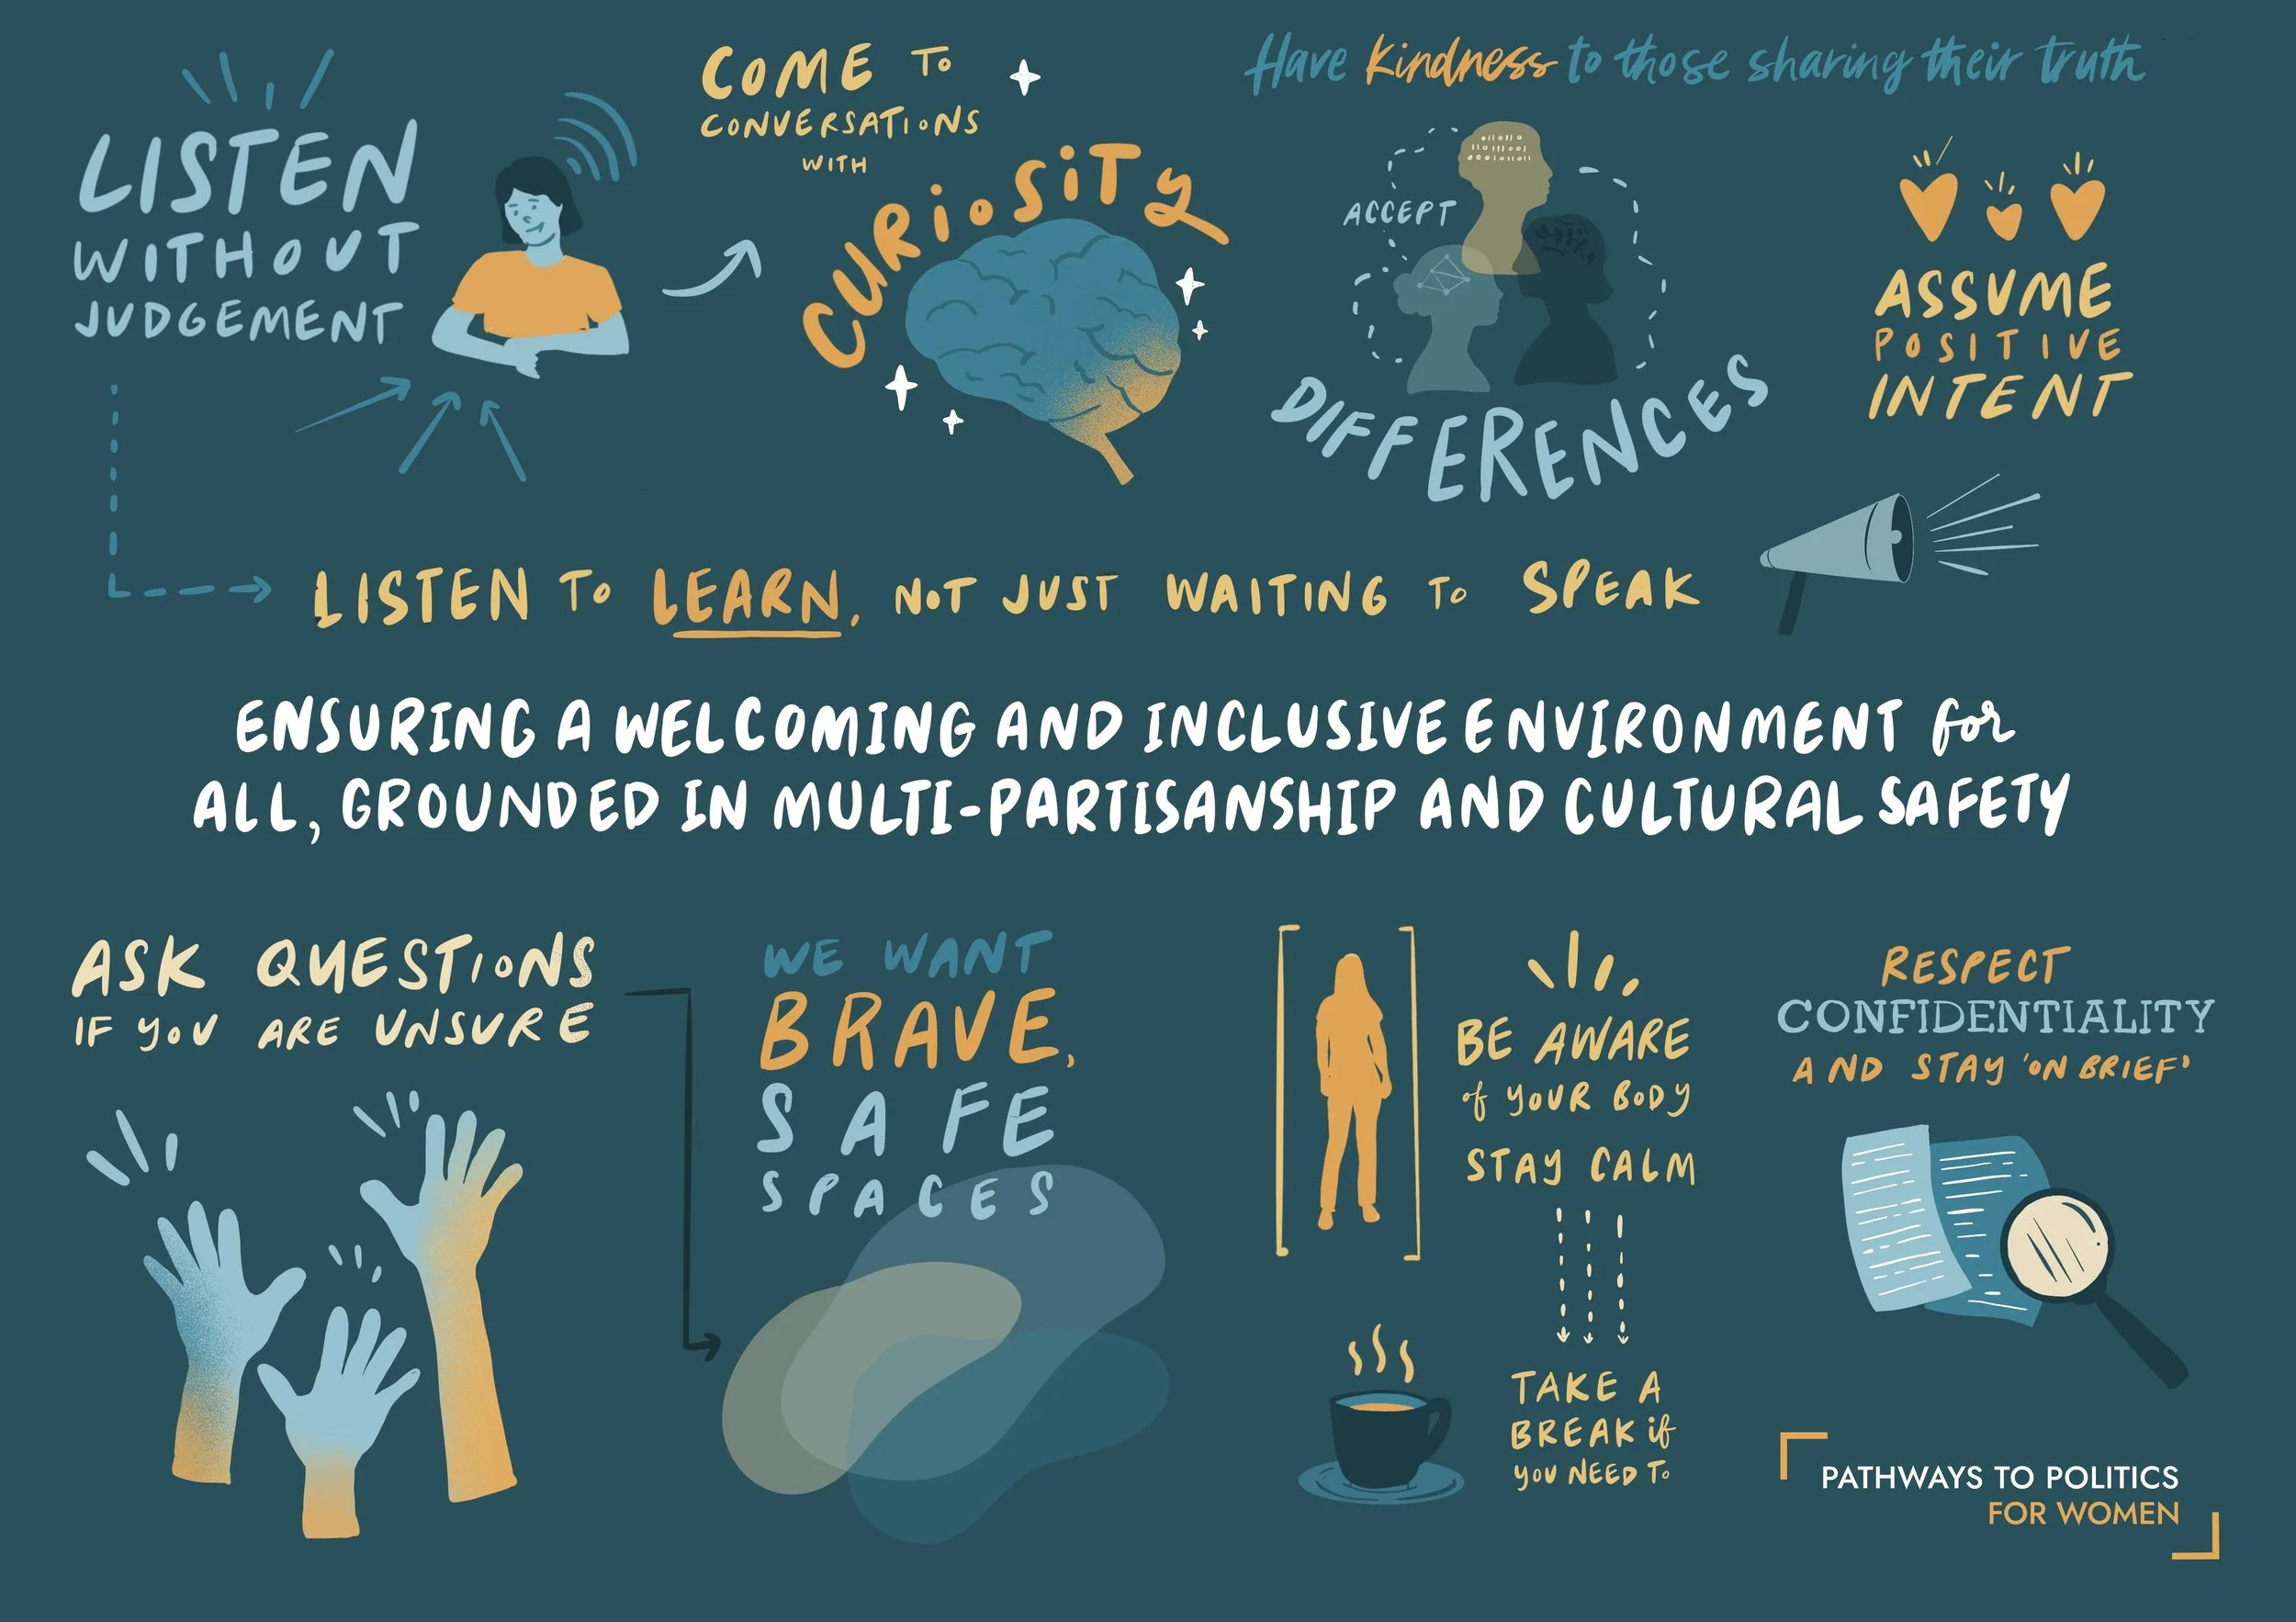 Have Kindness to those sharing their truth
LISTEN
WITHOUT
JUDGEMENT
COME TO
CONVERSATIONS
WITH
CURIOSITY
ACCEPT
DIFFERENCES
ASSUME
POSITIVE
INTENT
LISTEN TO LEARN, NOT JUST WAITING TO SPEAK
ENSURING A WELCOMING AND INCLUSIVE ENVIRONMENT for
ALL, GROUNDED IN MULTI-PARTISANSHIP AND CULTURAL SAFETY
ASK QUESTIONS
IF YOU ARE UNSURE
WE WANT
BRAVE,
SAFE
SPACES
BE AWARE
of YOUR BODY
STAY CALM
TAKE A
BREAK if
YOU NEED TO
RESPECT
CONFIDENTIALITY
AND STAY 'ON BRIEF'
PATHWAYS TO POLITICS
FOR WOMEN